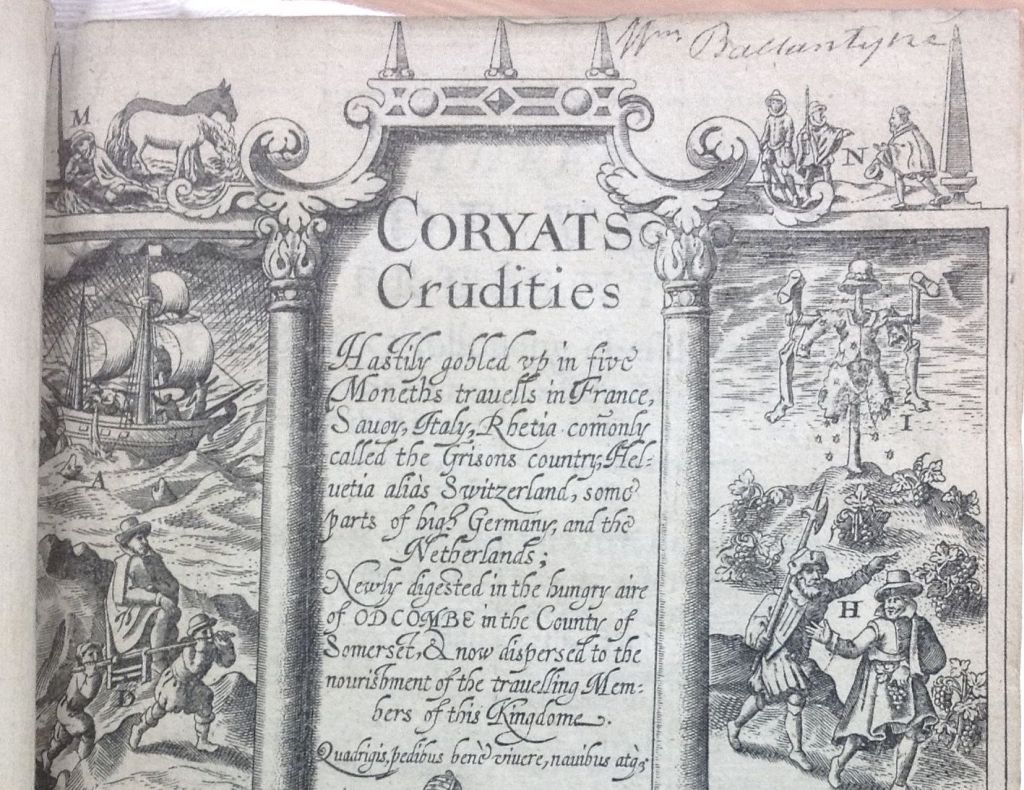 Wm Ballantyne
M
N
CORYATS
Crudities
Hastily gobled vp in five
Moneths trauells in France,
Sauoy, Italy, Rhetia comonly
called the Grisons country, Hel-
uetia aliàs Switzerland, some
parts of high Germany, and the
Netherlands;
Newly digested in the hungry aire
of ODCOMBE in the County of
Somerset, & now dispersed to the
nourishment of the trauelling Mem-
bers of this Kingdome.
Quadrigis, pedibus benè viuere, nauibus atq;
A
D
I
H